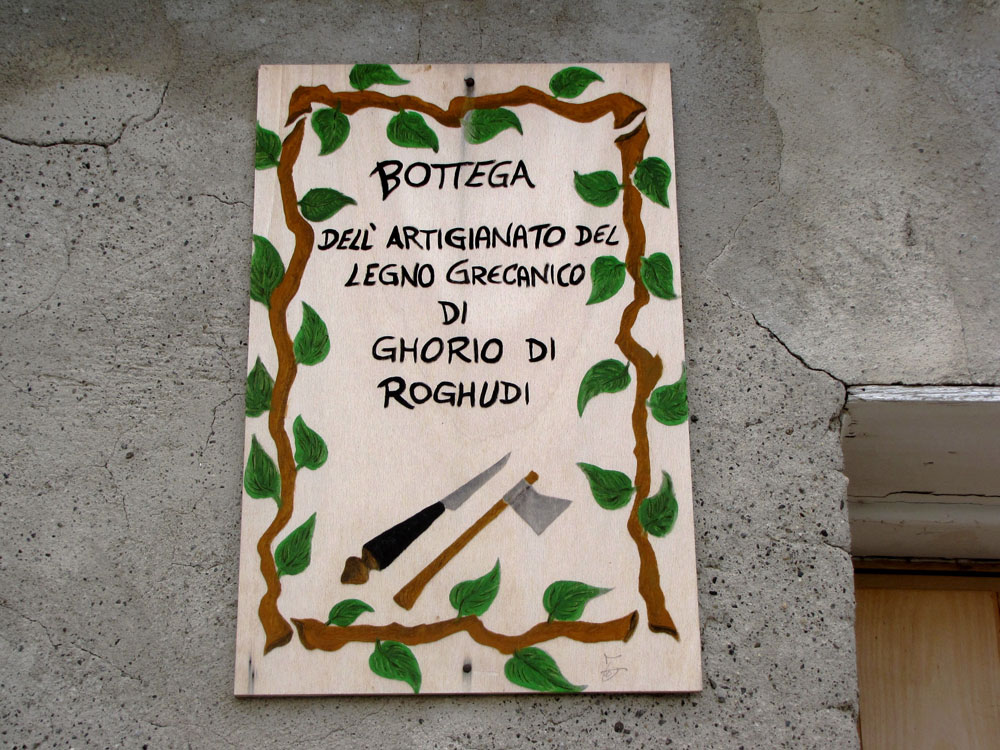 BOTTEGA
DELL' ARTIGIANATO DEL
LEGNO GRECANICO
DI
GHORIO DI
ROGHUDI